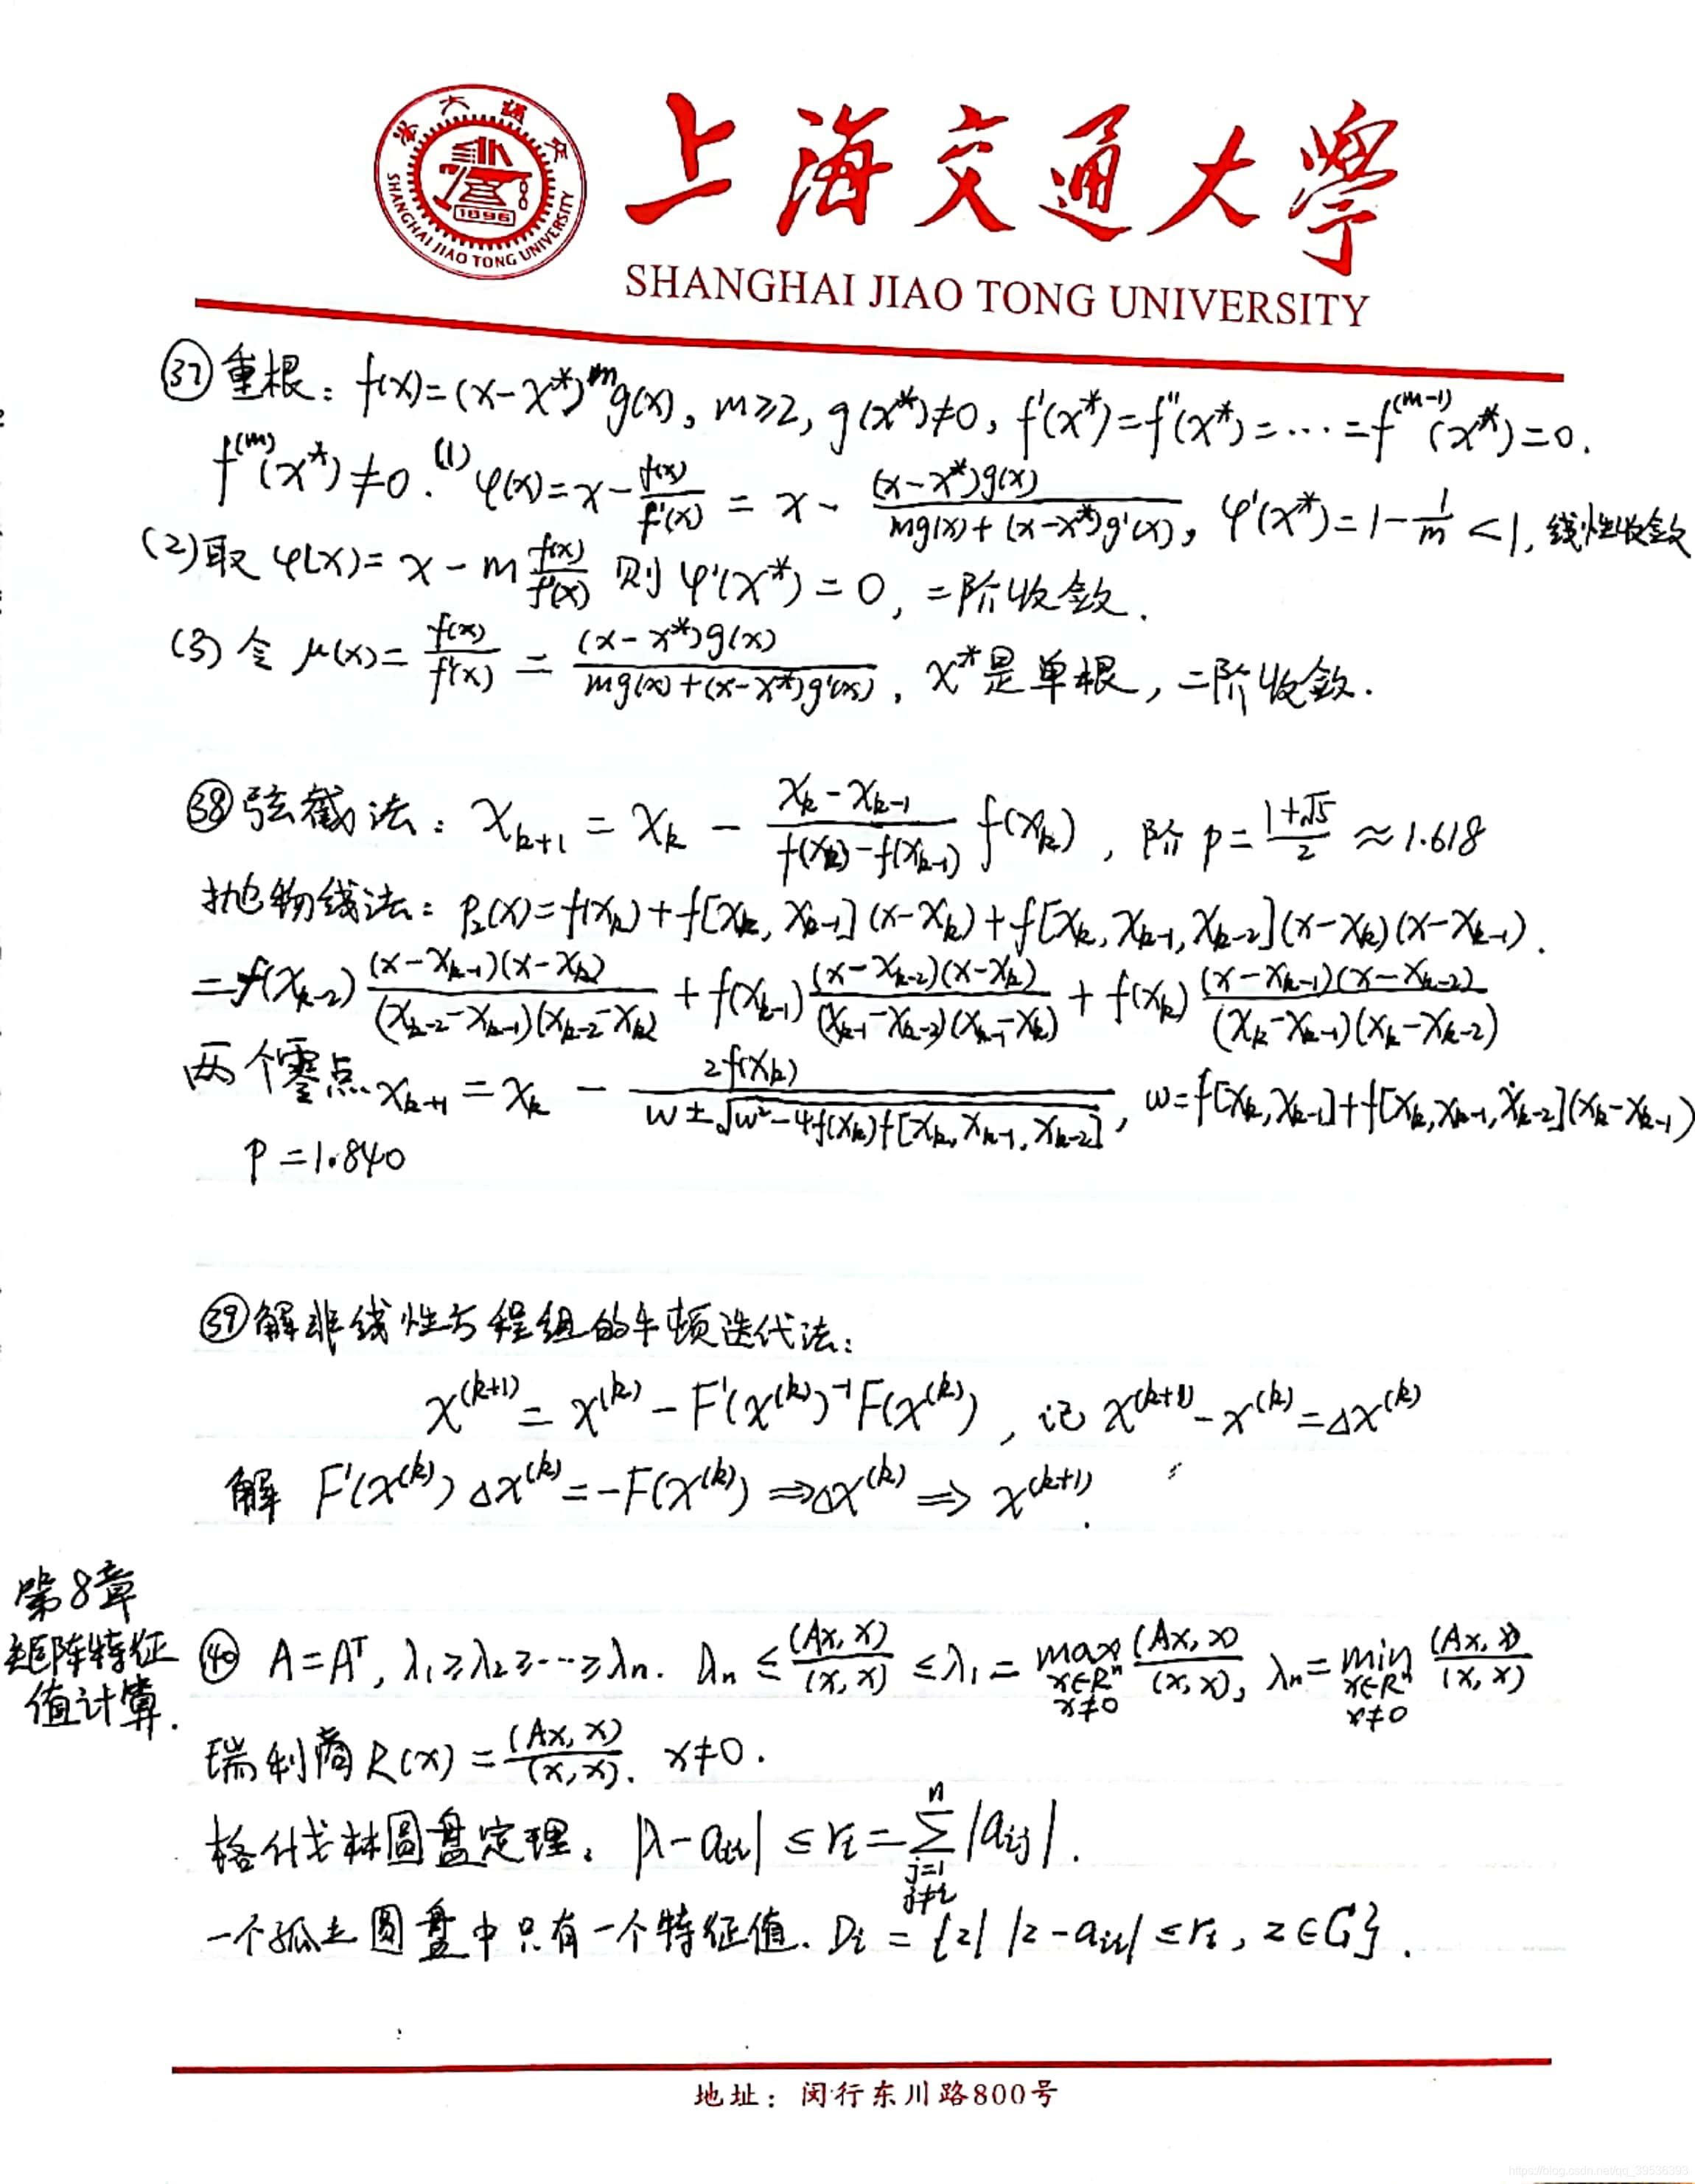 上海交通大學
SHANGHAI JIAO TONG UNIVERSITY
1896
SHANGHAI JIAO TONG UNIVERSITY
㊲重根：f(x)=(x-x*)^m g(x)，m≥2，g(x*)≠0，f'(x*)=f''(x*)=⋯=f^(m-1)(x*)=0.
f^(m)(x*)≠0. (1) φ(x)=x-f(x)/f'(x) = x - (x-x*)g(x)/(mg(x)+(x-x*)g'(x))，φ'(x*)=1-1/m<1，线性收敛
(2)取 φ(x)=x-m f(x)/f'(x) 则 φ'(x*)=0，二阶收敛.
(3) 令 μ(x)=f(x)/f'(x) = (x-x*)g(x)/(mg(x)+(x-x*)g'(x))，x*是单根，二阶收敛.
㊳弦截法：x_{k+1} = x_k - (x_k-x_{k-1})/(f(x_k)-f(x_{k-1})) f(x_k)，阶 p=(1+√5)/2 ≈1.618
抛物线法：p_2(x)=f(x_k)+f[x_k,x_{k-1}](x-x_k)+f[x_k,x_{k-1},x_{k-2}](x-x_k)(x-x_{k-1}).
=f(x_{k-2}) (x-x_{k-1})(x-x_k)/((x_{k-2}-x_{k-1})(x_{k-2}-x_k)) + f(x_{k-1}) (x-x_{k-2})(x-x_k)/((x_{k-1}-x_{k-2})(x_{k-1}-x_k)) + f(x_k) (x-x_{k-1})(x-x_{k-2})/((x_k-x_{k-1})(x_k-x_{k-2}))
两个零点 x_{k+1} = x_k - 2f(x_k)/(w±√(w²-4f(x_k)f[x_k,x_{k-1},x_{k-2}]))，w=f[x_k,x_{k-1}]+f[x_k,x_{k-1},x_{k-2}](x_k-x_{k-1})
p=1.840
㊴解非线性方程组的牛顿迭代法：
x^(k+1) = x^(k) - F'(x^(k))^-1 F(x^(k))，记 x^(k+1)-x^(k)=Δx^(k)
解 F'(x^(k))Δx^(k)=-F(x^(k)) ⇒Δx^(k) ⇒ x^(k+1).
第8章
矩阵特征
值计算.
㊵ A=A^T, λ_1≥λ_2≥⋯≥λ_n. λ_n ≤ (Ax,x)/(x,x) ≤λ_1 = max_{x∈R^n, x≠0} (Ax,x)/(x,x)，λ_n= min_{x∈R^n, x≠0} (Ax,x)/(x,x)
瑞利商R(x)=(Ax,x)/(x,x). x≠0.
格什戈林圆盘定理：|λ-a_ii| ≤ r_i=∑_{j=1, j≠i}^n |a_ij|.
一个孤立圆盘中只有一个特征值. D_i = {z| |z-a_ii|≤r_i, z∈C}.
地址：闵行东川路800号
https://blog.csdn.net/qq_39536393